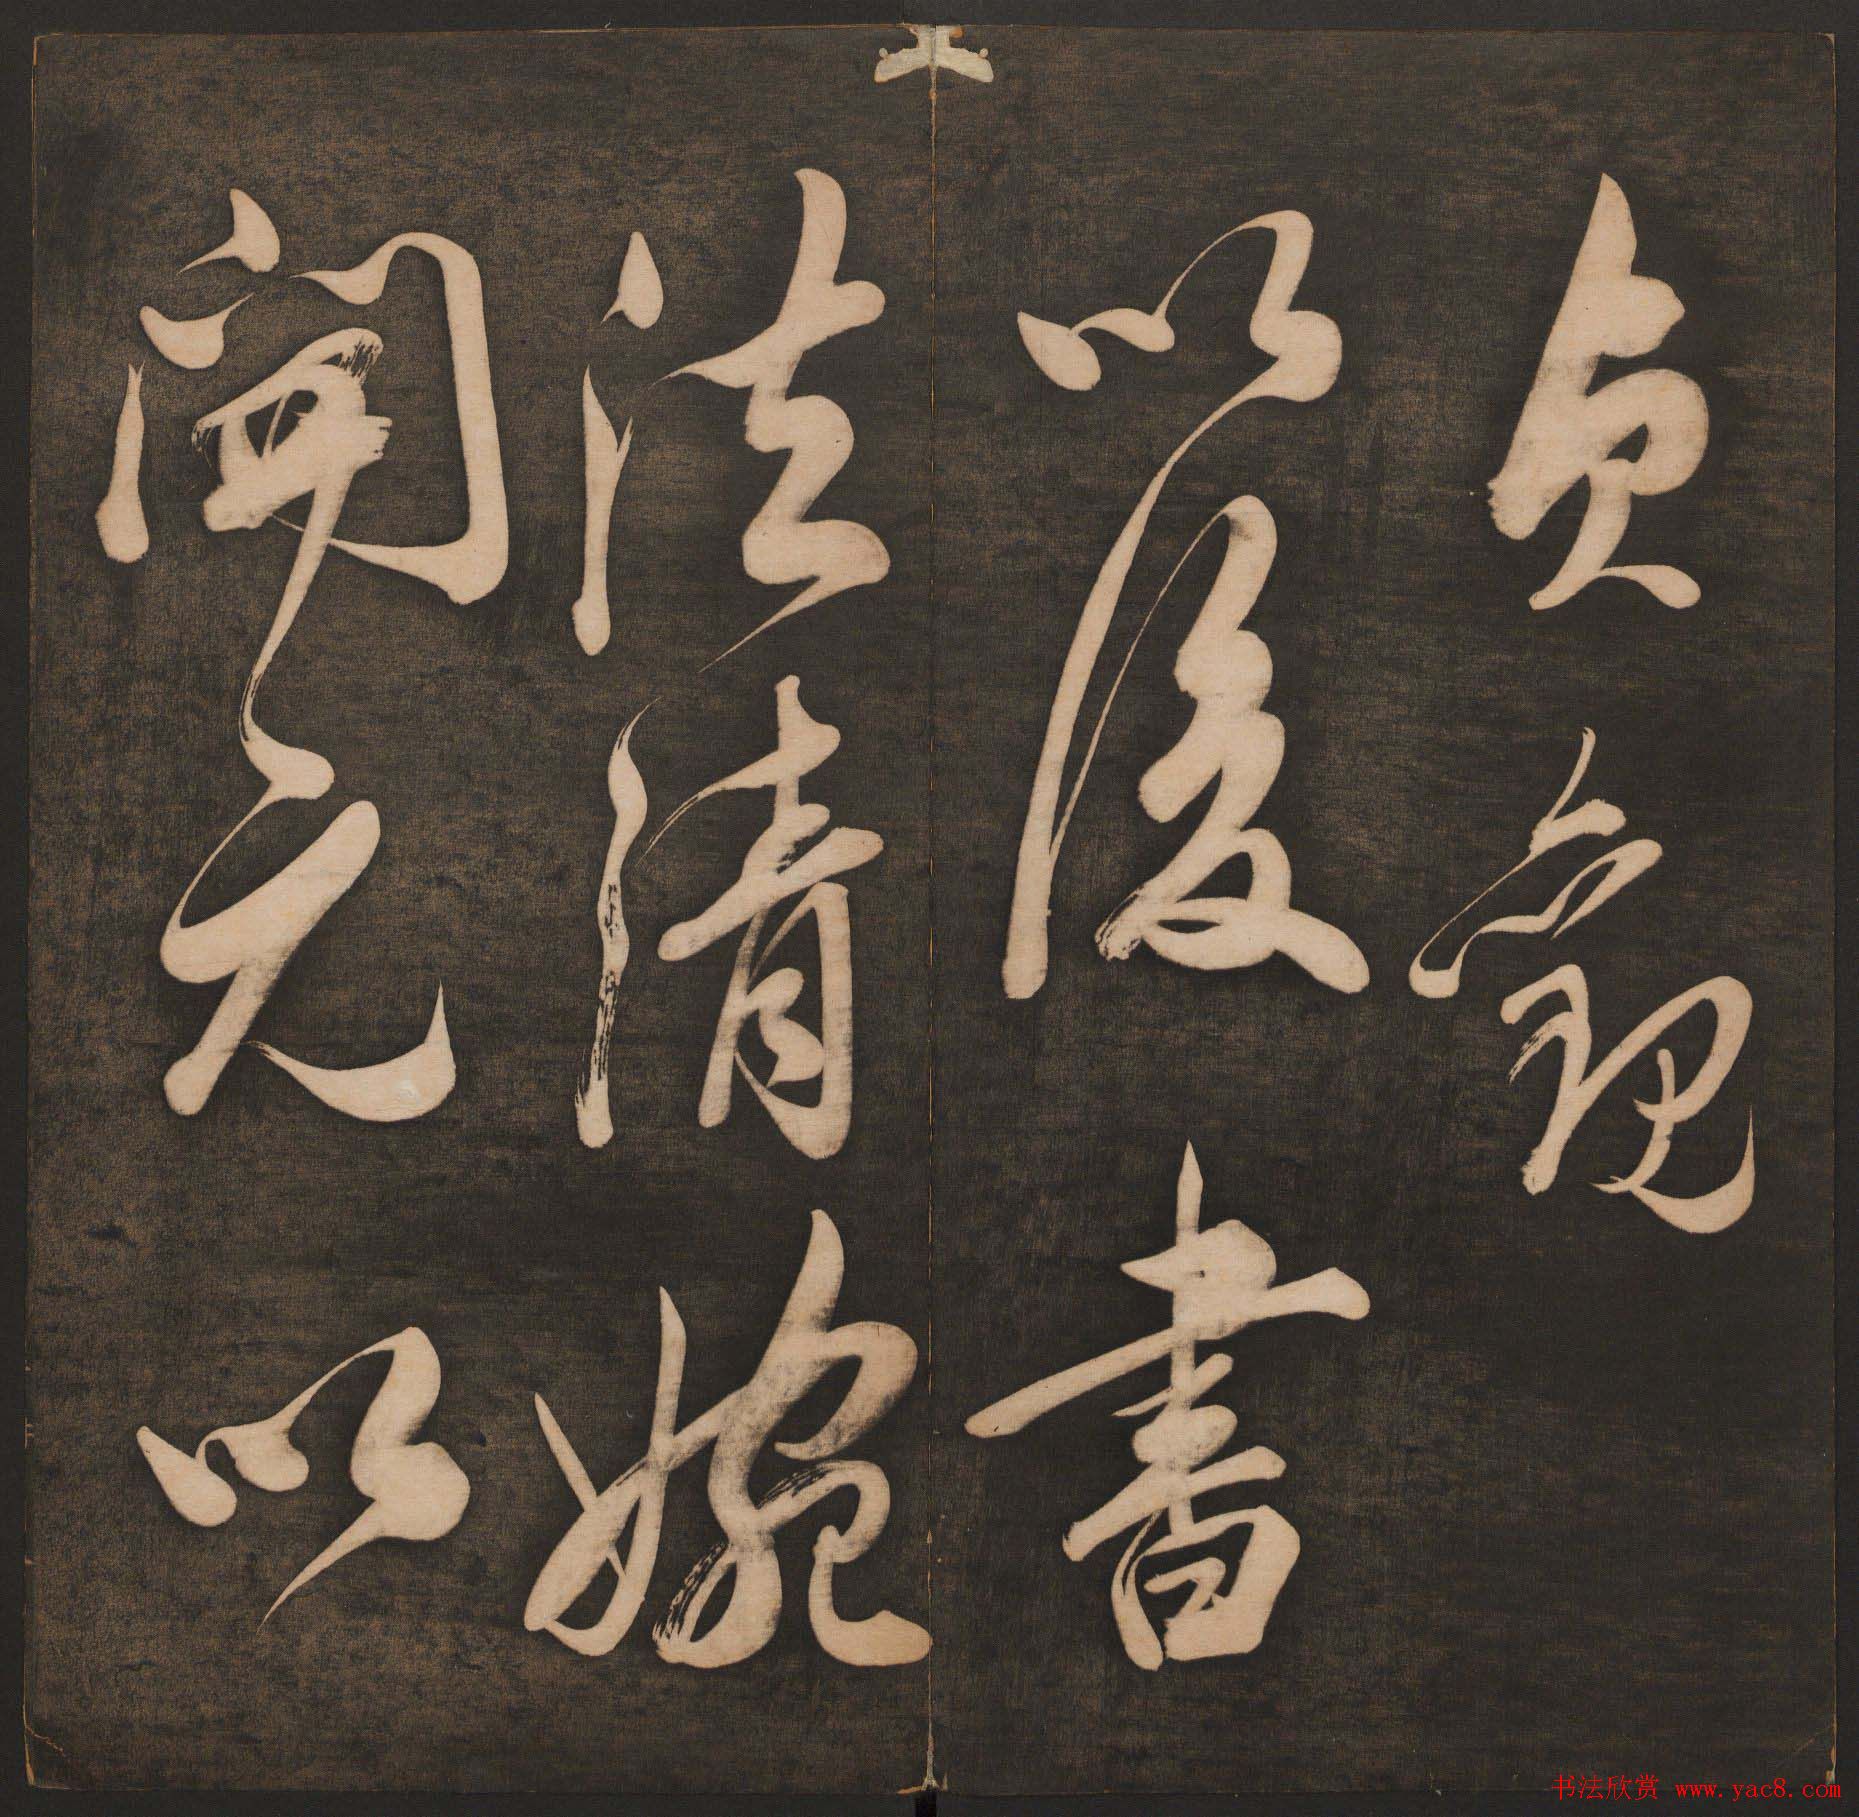 貞觀
以後書
法清婉
開元以
书法欣赏 www.yac8.com